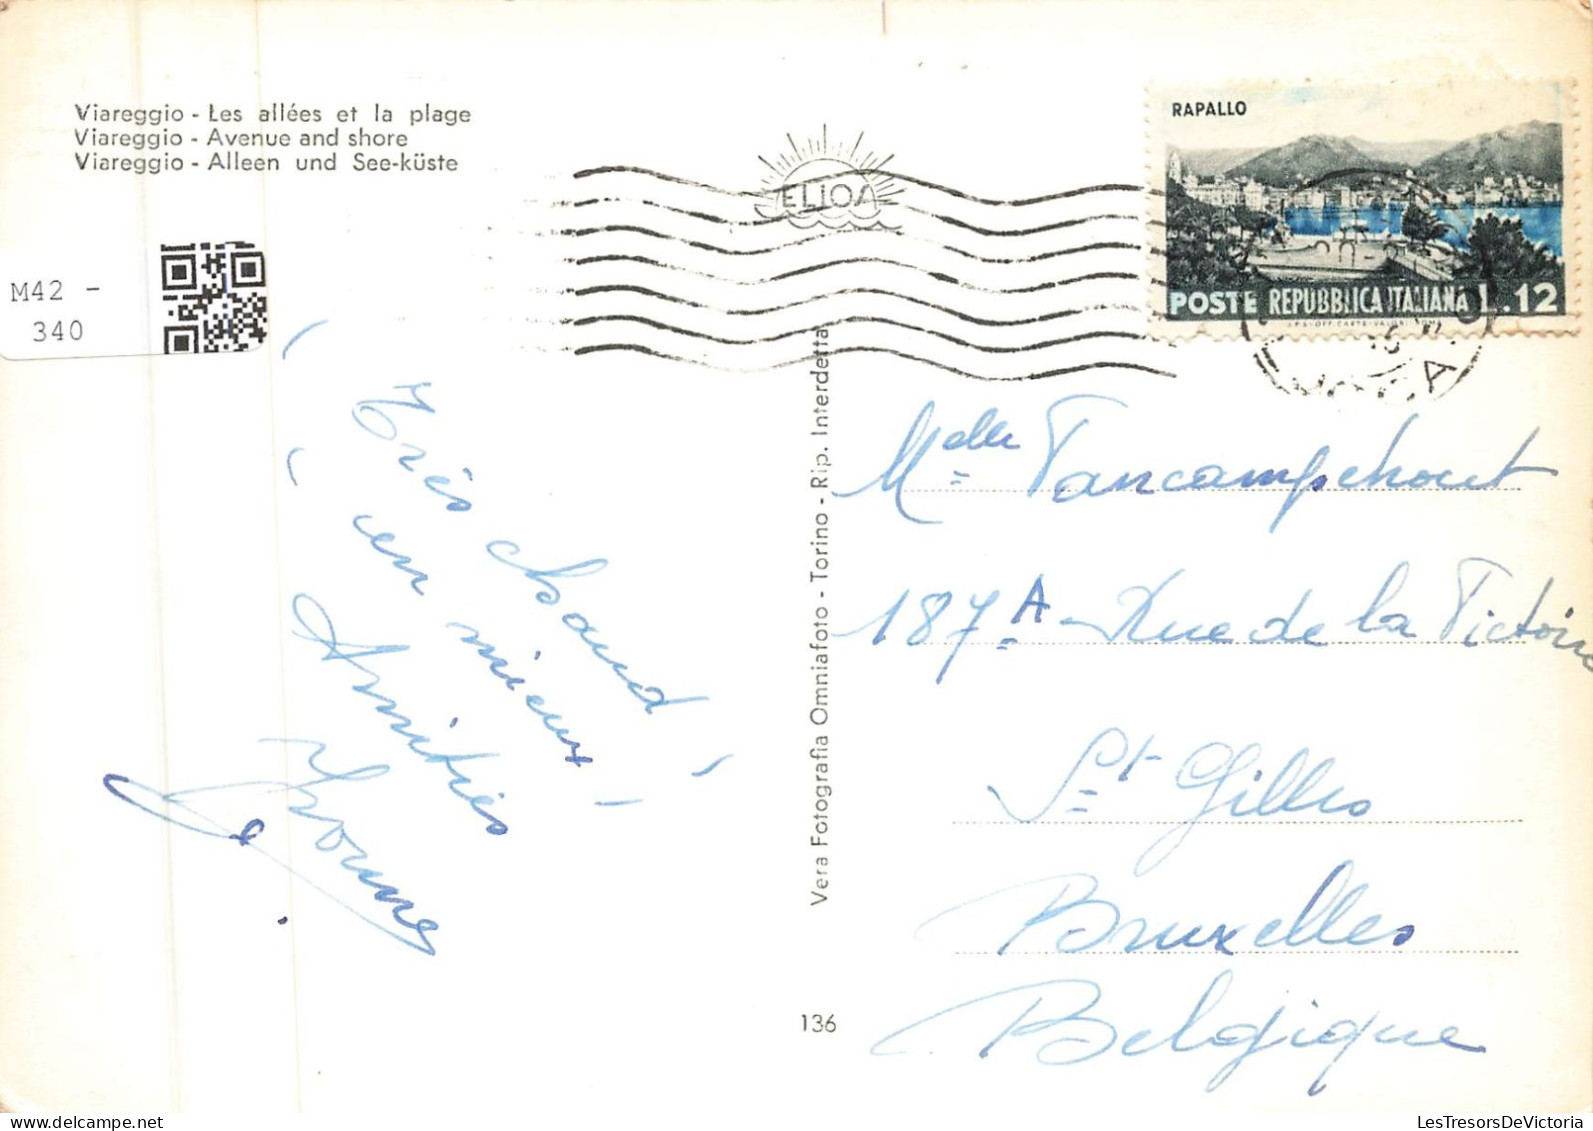 Viareggio - Les allées et la plage
Viareggio - Avenue and shore
Viareggio - Alleen und See-küste
M42 -
340
ELIOS
RAPALLO
POSTE REPUBBLICA ITALIANA L.12
Très chaud !
en mieux !
Amitiés
Yvonne
Vera Fotografia Omniafoto - Torino - Rip. Interdetta
136
Melle Vancampenhout
187A - Rue de la Victoire
St Gilles
Bruxelles
Belgique
LesTresorsDeVictoria